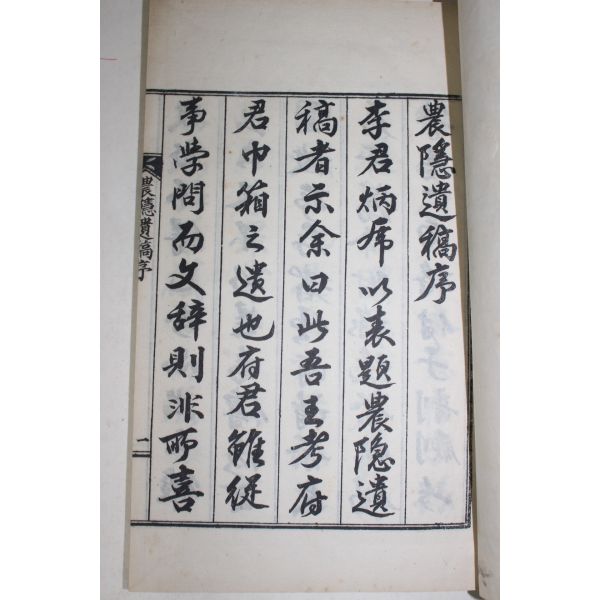 農隱遺稿序
李君炳席以表題農隐遺
稿者示余曰此吾王考府
君巾箱之遺也府君雖從
事学問而文辞則非所喜
農隱遺稿序
一